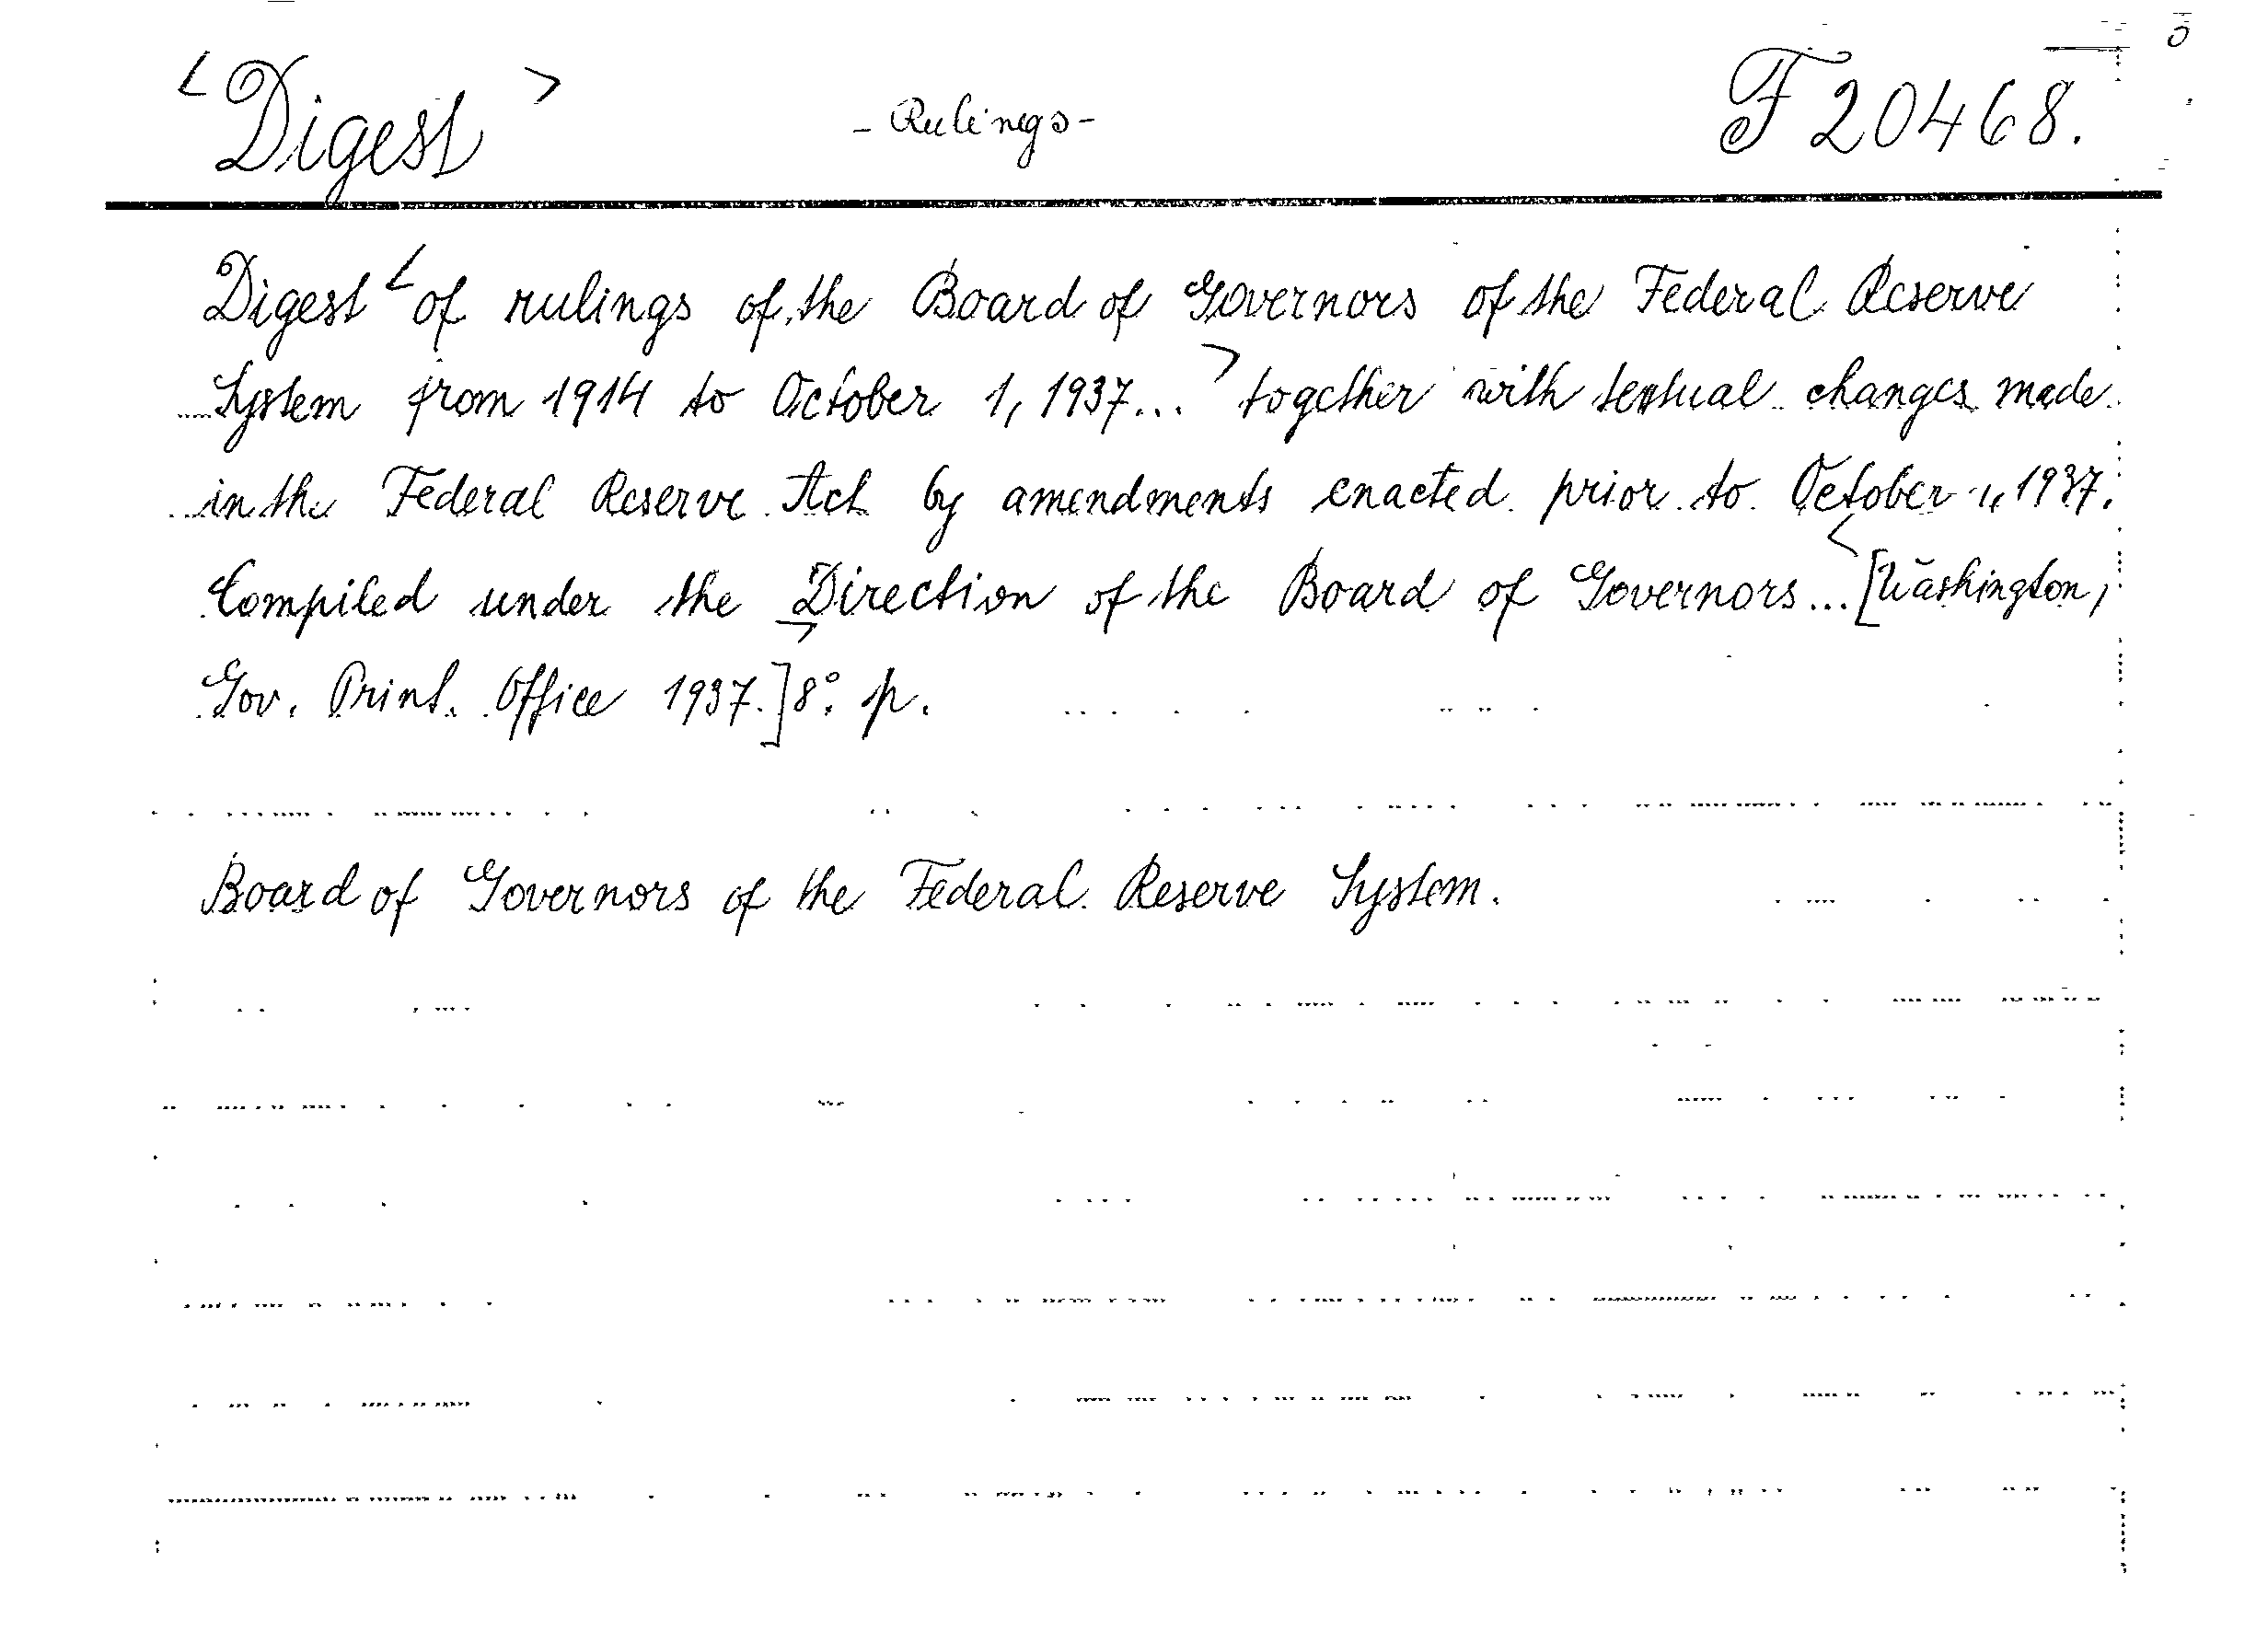 <Digest> - Rulings - F 20468.
Digest < of rulings of the Board of Governors of the Federal Reserve
System from 1914 to October 1, 1937... > together with textual changes made
in the Federal Reserve Act by amendments enacted prior to October 1, 1937.
Compiled under the Direction of the Board of Governors... < [Washington,
Gov. Print. Office 1937.] 8°. p.
Board of Governors of the Federal Reserve System.